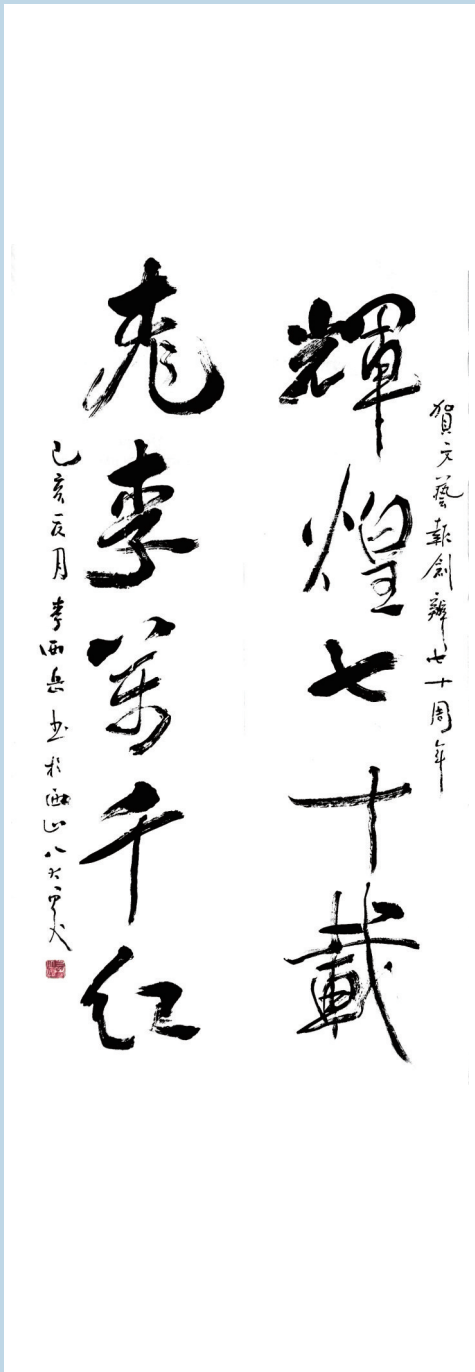 賀文藝報創辦七十周年
輝煌七十載
桃李萬千红
己亥月李西岳书於西山八大处